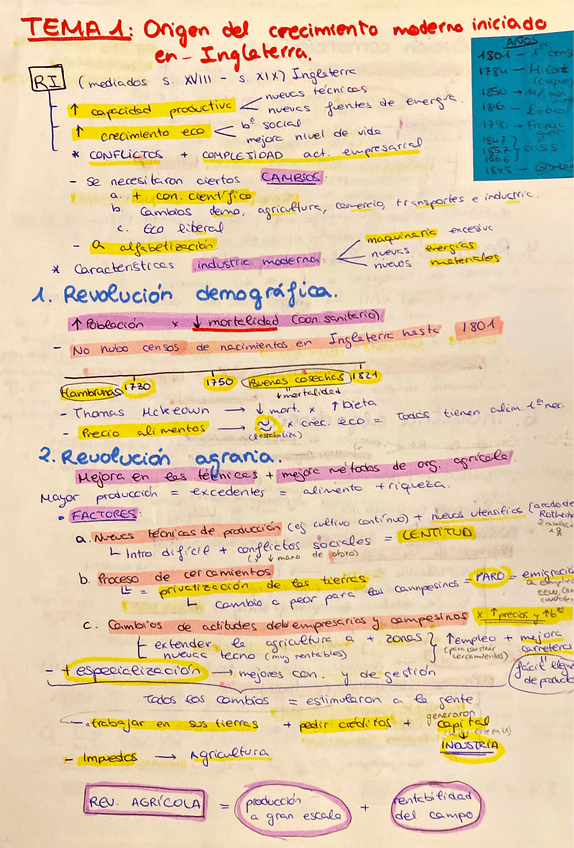 TEMA 1: Origen del crecimiento moderno iniciado
en Inglaterra.
AÑOS
1801 - 1er censo
1784 - H. Cort
1850
1816
1790
1847
1857 } crisis
1866
1845
RI (mediados s. XVIII - s. XIX) Inglaterra
↑ capacidad productiva < nuevas técnicas
nuevas fuentes de energía.
↑ crecimiento eco < bº social
mejora nivel de vida
* CONFLICTOS + COMPLEJIDAD act. empresarial
- Se necesitaron ciertos CAMBIOS:
a. + con. científico
b. Cambios demo, agricultura, comercio, transportes e industria.
c. Eco liberal
- alfabetización
* Características industria moderna: < maquinaria excesiva
nuevas energías
nuevos materiales
1. Revolución demográfica.
↑ Población x ↓ mortalidad (con. sanitario)
- No hubo censos de nacimientos en Inglaterra hasta 1801
Hambrunas 1730 1750 Buenas cosechas 1821
↓ mortalidad
- Thomas McKeown → ↓ mort. x ↑ dieta
- Precio alimentos → ≈ x crec. eco = Todos tienen alim 1ª nec.
2. Revolución agraria.
Mejora en las técnicas + mejora métodos de org. agrícola.
Mayor producción = excedentes = alimento + riqueza.
• FACTORES:
a. Nuevas técnicas de producción (ej cultivo continuo) + nuevos utensilios (arado de
Intro. difícil + conflictos sociales = LENTITUD
(x ↓ mano de obra)
b. Proceso de cercamientos
= privatización de las tierras
cambio a peor para los campesinos = PARO = emigración
c. Cambios de actitudes del empresarios y campesinos x ↑ precios y ↑ bº
extender la agricultura a + zonas
nuevas tecno (muy rentables) } ↑ empleo + mejora
(para construir cercamientos) carreteras
- + especialización → mejores con. y de gestión
fácil llegada
de productos
Todos los cambios = estimularon a la gente
trabajar en sus tierras + pedir créditos + generaron capital
INDUSTRIA
- Impuestos → Agricultura
REV. AGRÍCOLA = producción a gran escala + rentabilidad del campo